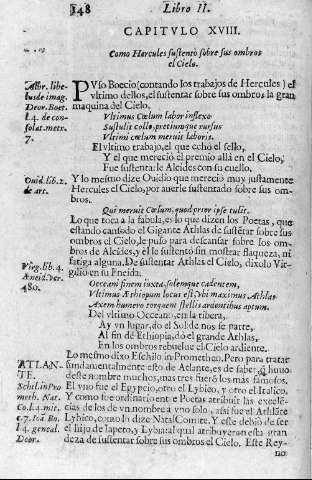 148
Libro II.
CAPITVLO XVIII.
Como Hercules sustentò sobre sus ombros
el Cielo.
PVso Boecio (contando los trabajos de Hercules) el
vltimo dellos, el sustentar sobre sus ombros la gran
maquina del Cielo.
Vltimus Cœlum labor inflexo
Sustulit collo, pretiumque rursus
Vltimi cœlum meruit laboris.
El vltimo trabajo, el que echó el sello,
Y el que mereciò el premio allà en el Cielo,
Fue sustentarle Alcides con su cuello.
Y lo mesmo dize Ouidio que mereciò muy justamente
Hercules el Cielo, por auerle sustentado sobre sus om-
bros.
Qui meruit Cœlum, quod prior ipse tulit.
Lo que toca a la fabula, es lo que dizen los Poetas, que
estando cansado el Gigante Athlas de sustẽtar sobre sus
ombros el Cielo, le puso para descansar sobre los om-
bros de Alcides, y èl le sustentò sin mostrar flaqueza, ni
fatiga alguna. De sustentar Athlas el Cielo, dixolo Vir-
gilio en su Eneida.
Oceani finem iuxta, solemque cadentem,
Vltimus Æthiopum locus est, vbi maximus Athlas
Axem humero torquet stellis ardentibus aptum.
Del vltimo Occeano, en la ribera,
Ay vn lugar, do el Sol de nos se parte,
Al fin de Ethiopia, dò el grande Athlas,
En los ombros rebuelue el Cielo ardiente.
Lo mesmo dixo Eschilo in Prometheo. Pero para tratar
fundamentalmente esto de Atlante, es de saber, q̃ huuo
deste nombre muchos, mas tres fuerõ los mas famosos.
El vno fue el Egypcio, otro el Lybico, y otro el Italico.
Y como fue ordinario entre Poetas atribuir las excelẽ-
cias de los de vn nombre a vno solo, assi fue el Athlãte
Lybico, como lo dize Natal Comite. Y este debiò de ser
el hijo de Iapeto, y Lybia; al qual atribuyeron esta gran
deza de sustentar sobre sus ombros el Cielo. Este Rey-
no
Albr. libe-
lus de imag.
Deor. Boet.
l. 4. de con-
solat. metr.
7.
Ouid. lib. 2.
de art.
Virg. lib. 4.
Æneid. ver.
480.
ATLAN-
TE.
Schil. in Pro
meth. Nat.
Co. l. 4. mit.
c. 7. Ioã Bo.
l. 4. geneal.
Deor.